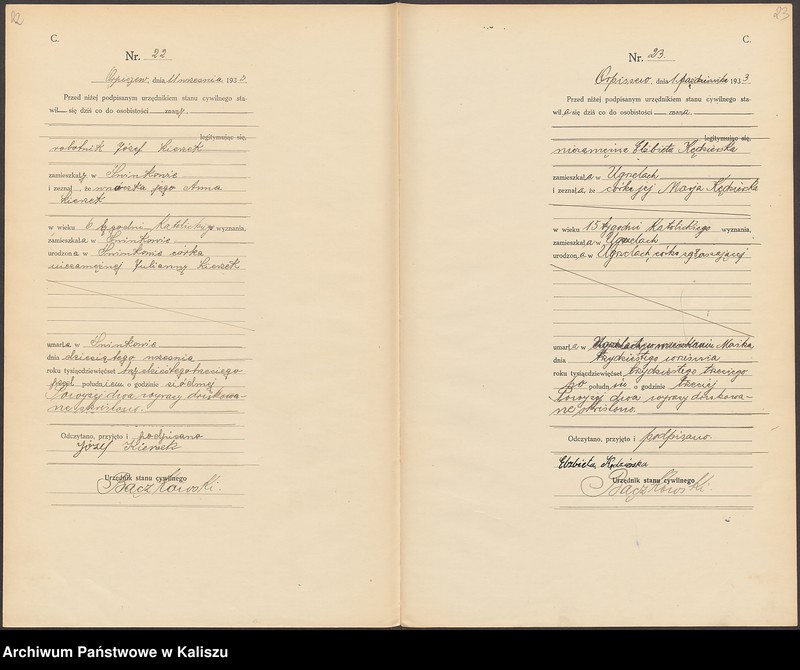 22
C.
Nr. 22
Orpiszew, dnia 11 września 1933
Przed niżej podpisanym urzędnikiem stanu cywilnego sta-
wił się dziś co do osobistości znany,
legitymując się,
robotnik Józef
zamieszkały w Świnkowie
i zeznał, że wnuczka jego Anna
w wieku 6 tygodni Katolickiego wyznania,
zamieszkała w Świnkowie
urodzona w Świnkowie córka
niezamężnej Julianny
umarła w Świnkowie
dnia dziesiątego września
roku tysiącdziewięćset trzydziestego trzeciego
przed południem o godzinie siódmej
Powyżej dwa wyrazy drukowa-
ne skreślono.
Odczytano, przyjęto i podpisano
Józef
Urzędnik stanu cywilnego
Bączkowski.
23
C.
Nr. 23.
Orpiszew, dnia 1 października 1933
Przed niżej podpisanym urzędnikiem stanu cywilnego sta-
wiła się dziś co do osobistości znana,
legitymując się,
niezamężna Elżbieta Kędzierska
zamieszkała w Ugrzelach
i zeznała, że córka jej Marja Kędzierska
w wieku 15 tygodni Katolickiego wyznania,
zamieszkała w Ugrzelach
urodzona w Ugrzelach, córka zgłaszającej
umarła w
dnia trzydziestego września
roku tysiącdziewięćset trzydziestego trzeciego
po południu o godzinie trzeciej
Powyżej dwa wyrazy drukowa-
ne skreślono.
Odczytano, przyjęto i podpisano
Elżbieta Kędzierska
Urzędnik stanu cywilnego
Bączkowski.
Archiwum Państwowe w Kaliszu